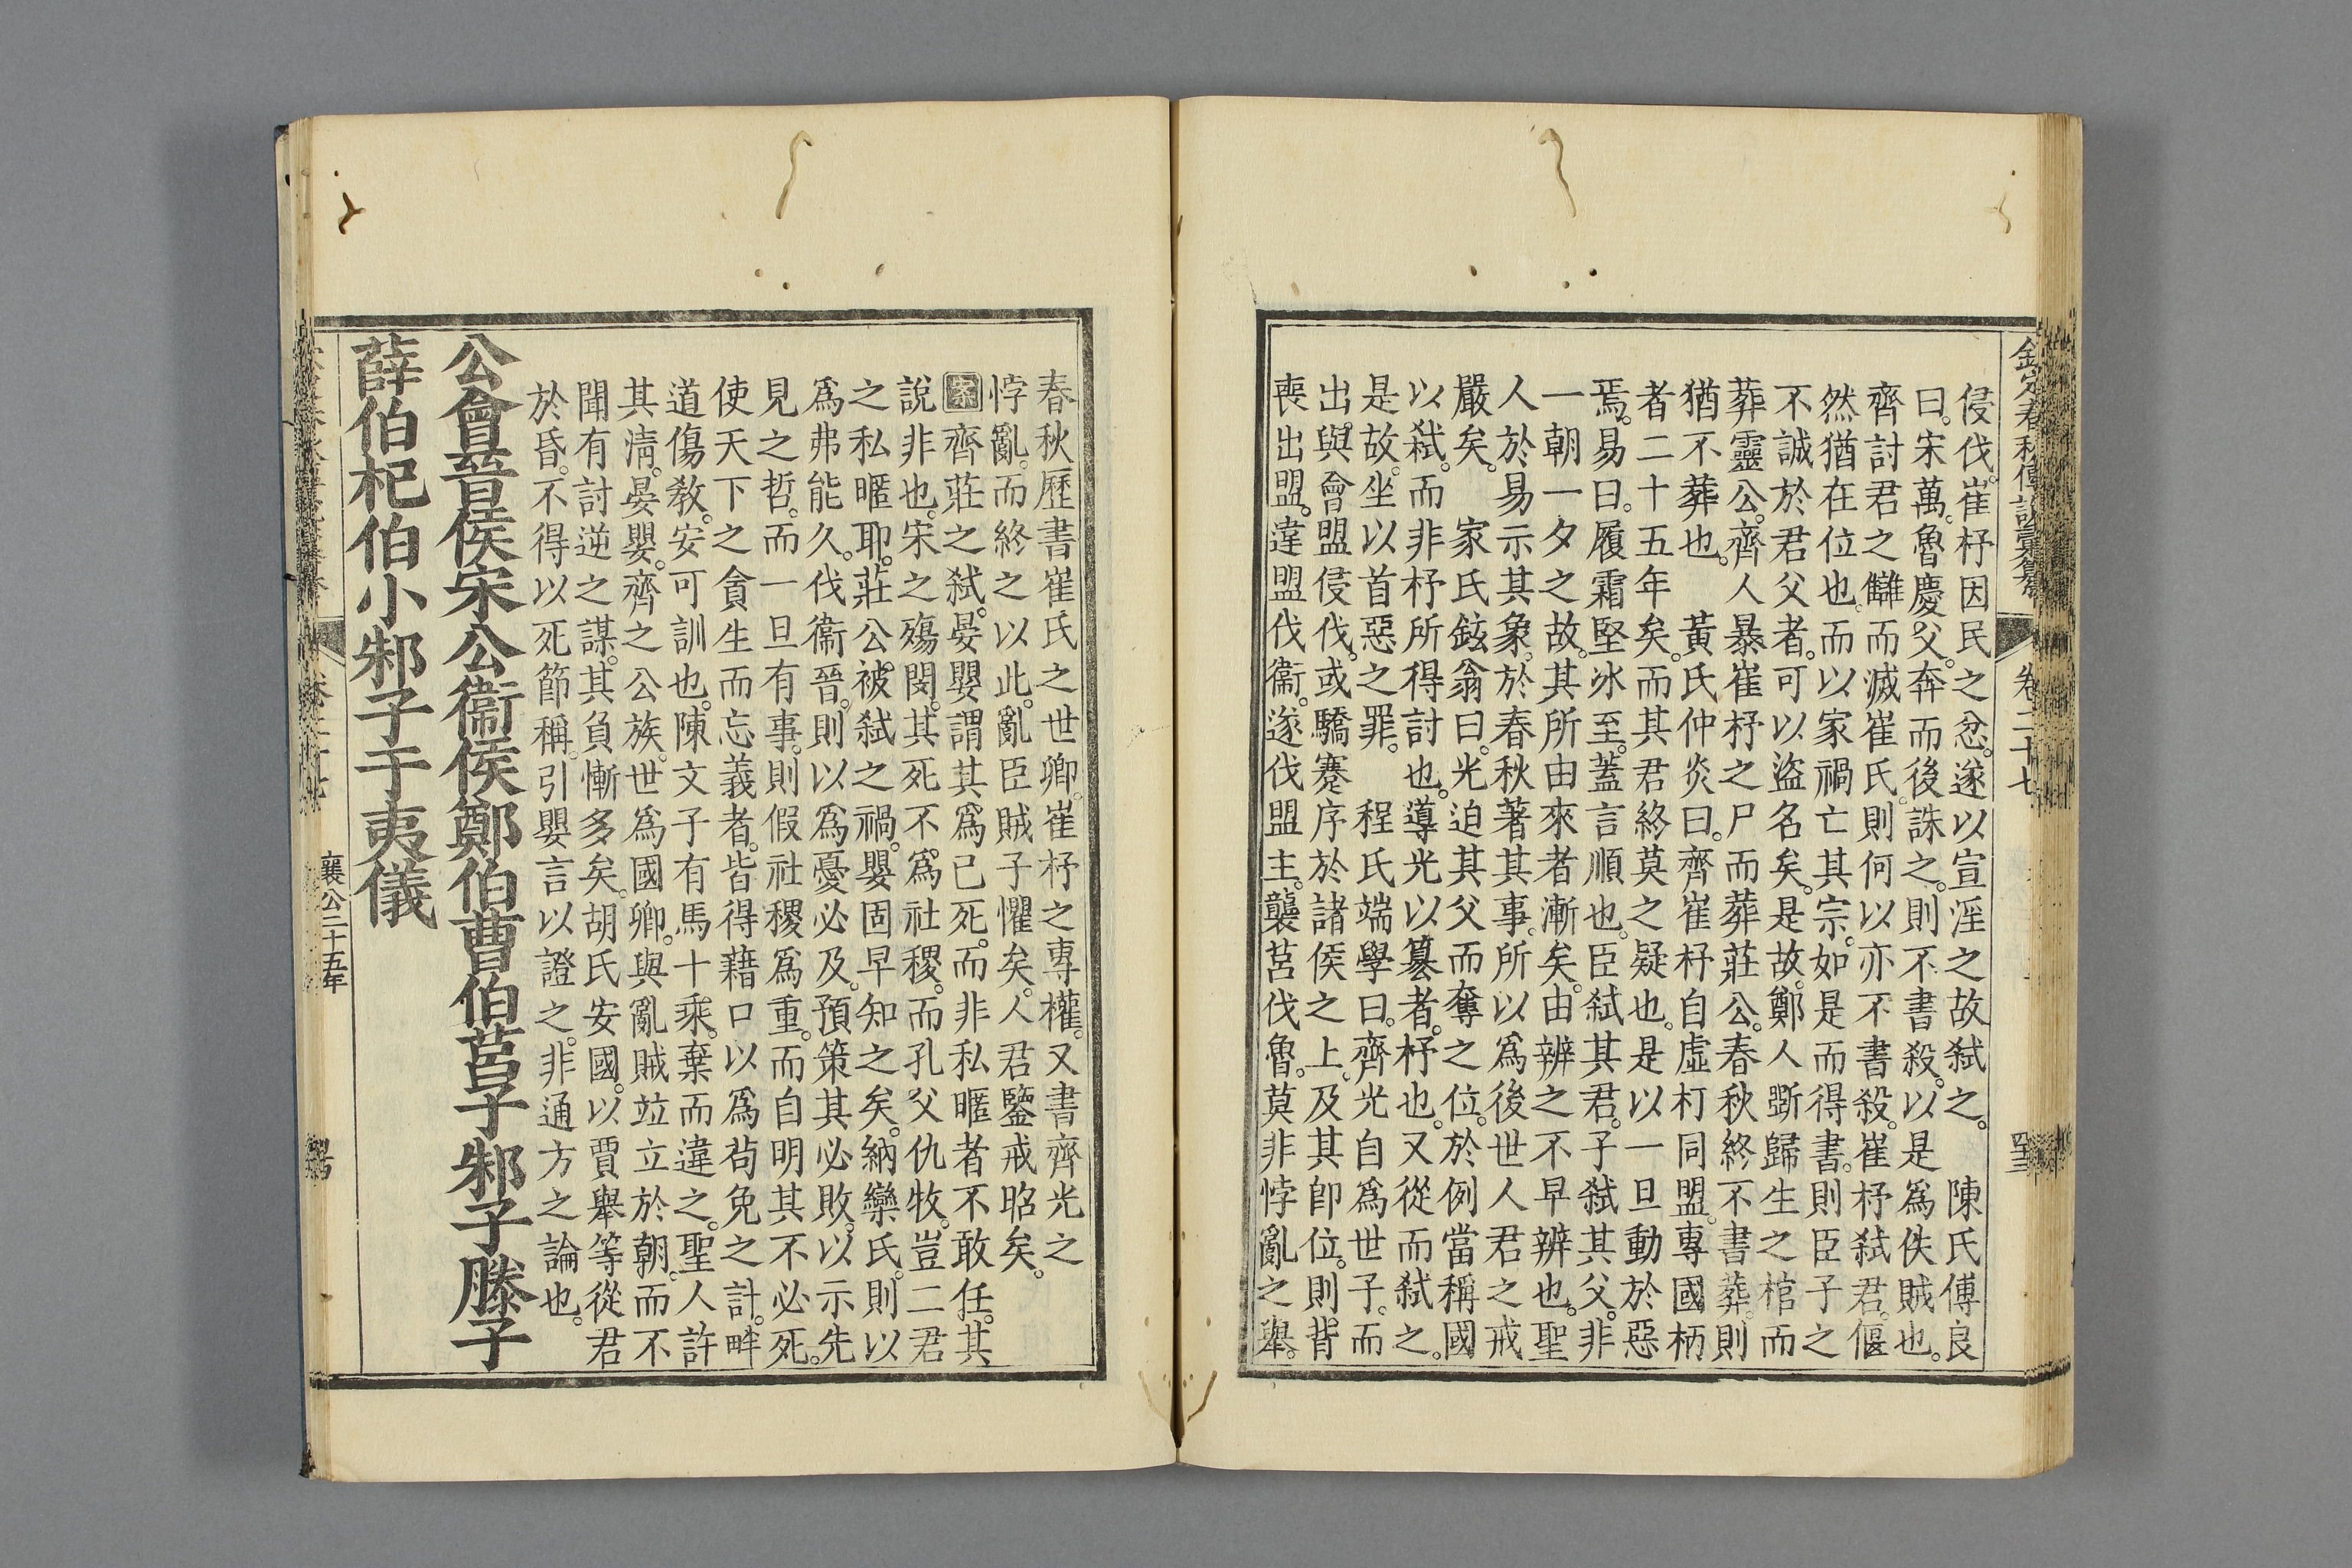 欽定春秋傳說彙纂
卷二十七
侵伐。崔杼因民之忿。遂以宣淫之故弑之。　陳氏傅良
曰。宋萬。魯慶父。奔而後誅之。則不書殺。以是爲佚賊也。
齊討君之讎而滅崔氏。則何以亦不書殺。崔杼弑君。偃
然猶在位也。而以家禍亡其宗。如是而得書。則臣子之
不誠於君父者。可以盜名矣。是故。鄭人斲歸生之棺而
葬靈公。齊人暴崔杼之尸而葬莊公。春秋終不書葬。則
猶不葬也。　黃氏仲炎曰。齊崔杼自虛朾同盟。專國柄
者二十五年矣。而其君終莫之疑也。是以一旦動於惡
焉。易曰。履霜堅冰至。蓋言順也。臣弑其君。子弑其父。非
一朝一夕之故。其所由來者漸矣。由辨之不早辨也。聖
人於易示其象。於春秋著其事。所以爲後世人君之戒
嚴矣。　家氏鉉翁曰。光迫其父而奪之位。於例當稱國
以弑。而非杼所得討也。導光以篡者。杼也。又從而弑之。
是故。坐以首惡之罪。　程氏端學曰。齊光自爲世子。而
出。與會盟侵伐。或驕蹇序於諸侯之上。及其卽位。則背
喪出盟。違盟伐衞。遂伐盟主。襲莒伐魯。莫非悖亂之舉。
春秋歷書崔氏之世卿。崔杼之專權。又書齊光之
悖亂。而終之以此。亂臣賊子懼矣。人君鑒戒昭矣。
案齊莊之弑。晏嬰謂其爲已死。而非私暱者不敢任。其
說非也。宋之殤閔。其死不。爲社稷。而孔父仇牧。豈二君
之私暱耶。莊公。被弑之禍。嬰固早知之矣。納欒氏。則以
爲弗能久。伐衞晉。則以爲憂必及。預策其必敗。以示先
見之哲。而一旦有事。則假社稷爲重。而自明其不必死。
使天下之貪生而忘義者。皆得藉口以爲苟免之計。畔
道傷教。安可訓也。陳文子有馬十乘。棄而違之。聖人許
其淸。晏嬰。齊之公族。世爲國卿。與亂賊竝立於朝。而不
聞有討逆之謀。其負慚多矣。胡氏安國。以賈舉等從君
於昏。不得以死節稱。引嬰言以證之。非通方之論也。
公會晉侯宋公衞侯鄭伯曹伯莒子邾子滕子
薛伯杞伯小邾子于夷儀
襄公二十五年